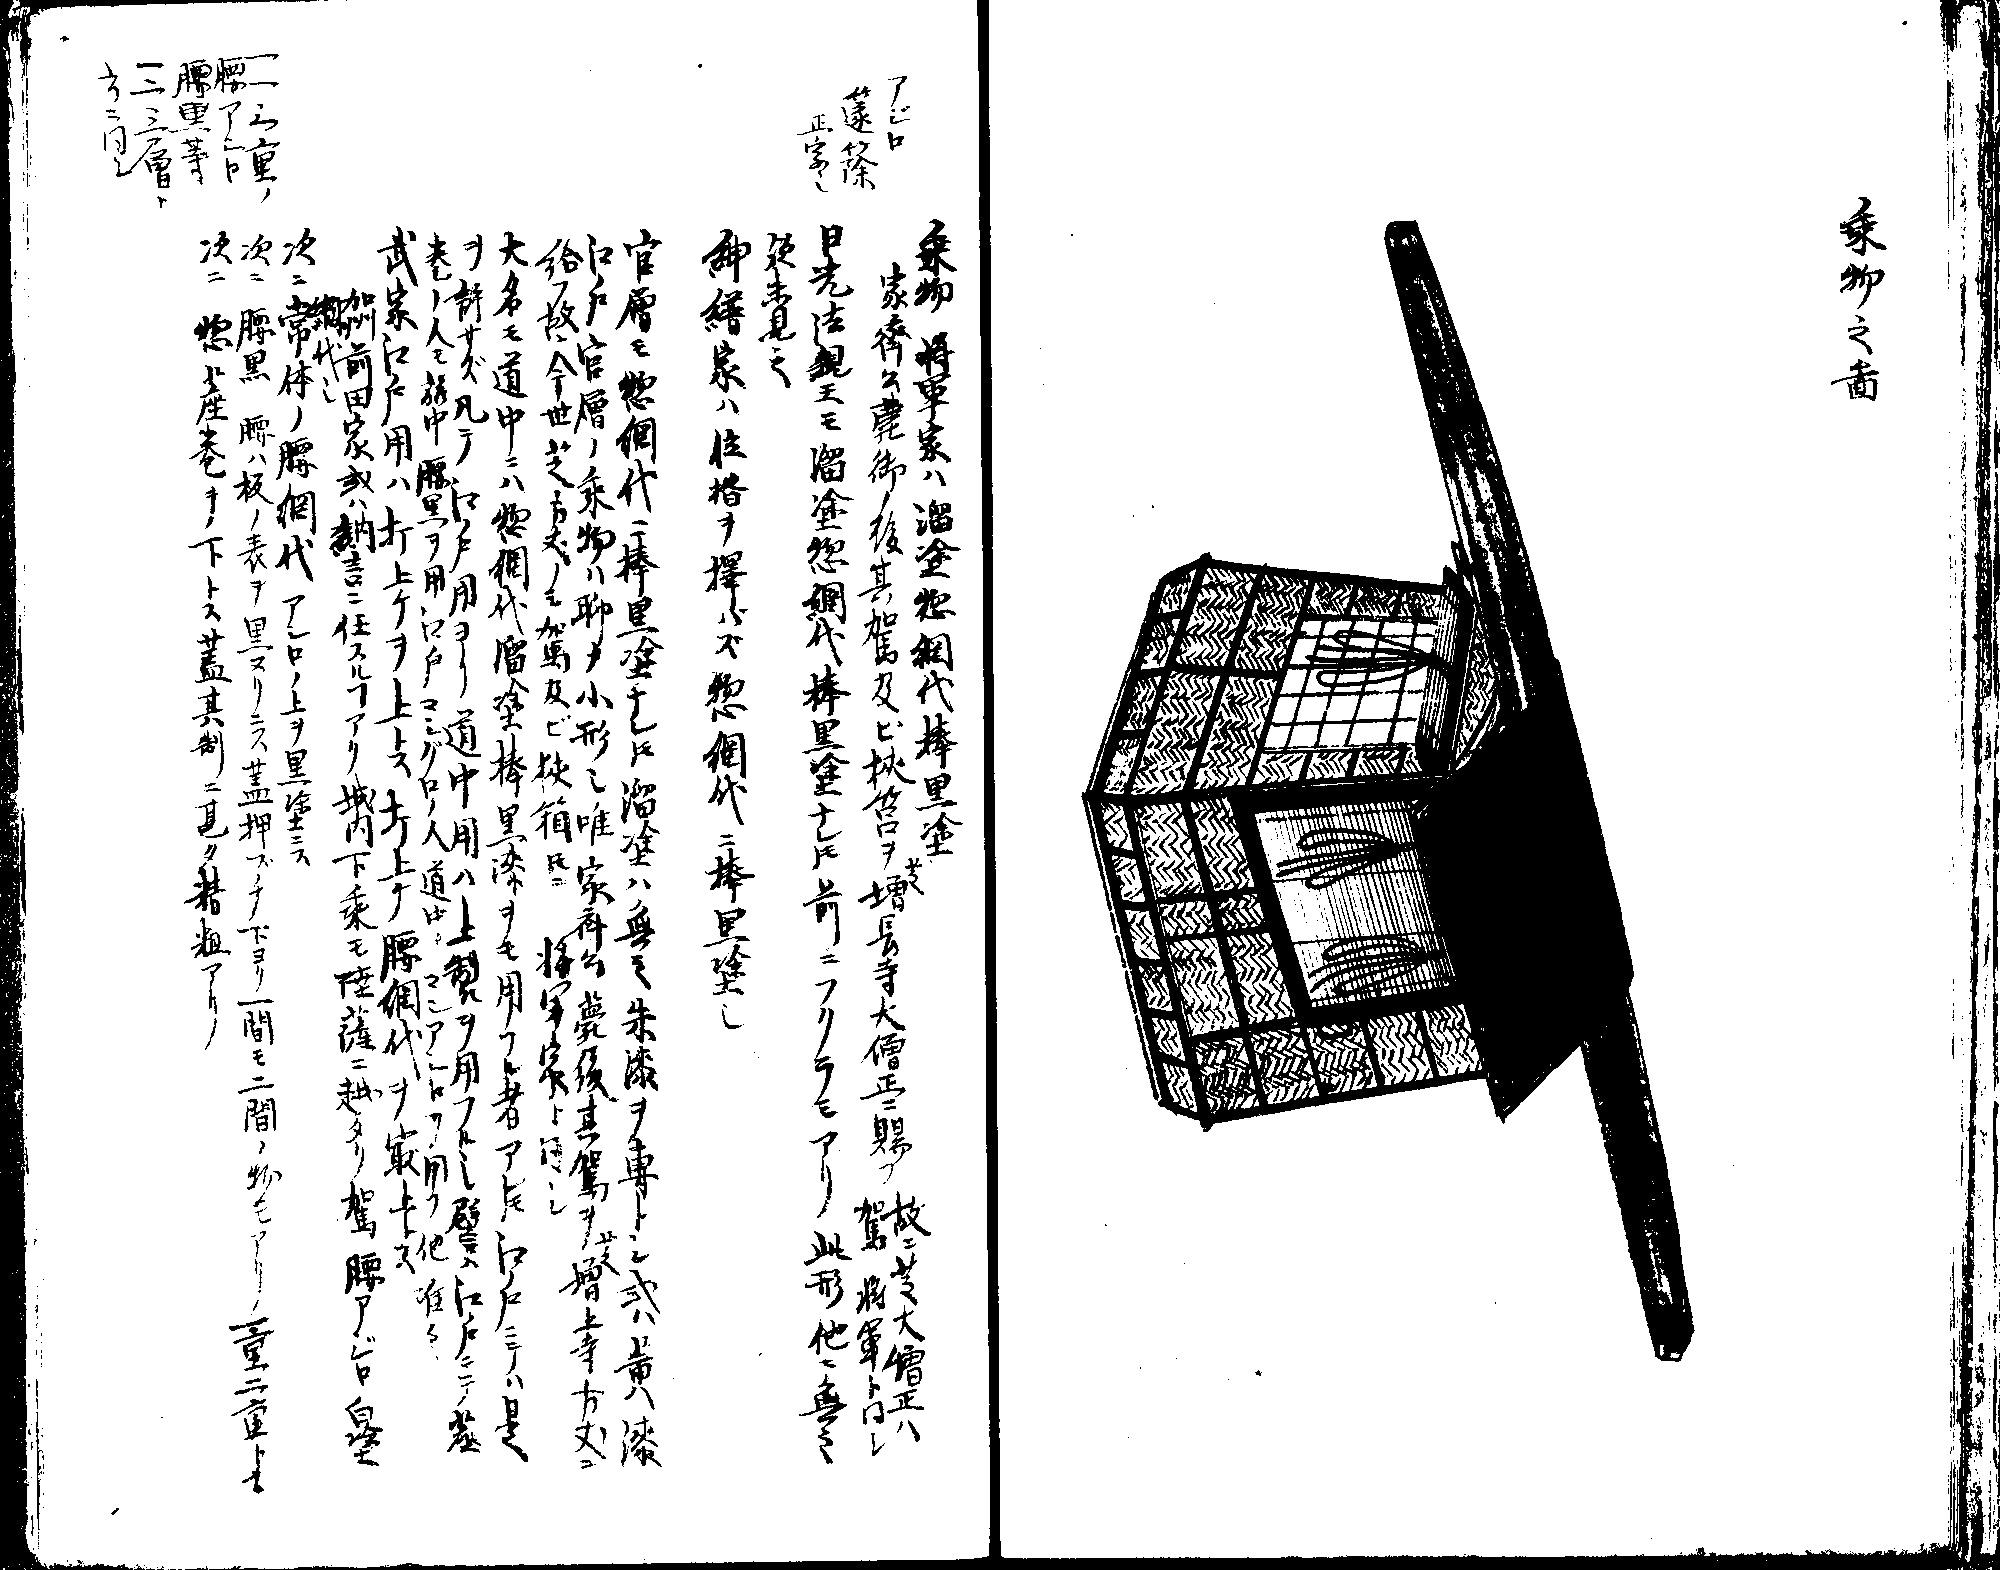 乗物之圖
アジロ
籧篨
正字也
乗物 将軍家ハ溜塗惣網代棒黒塗
家齊公薨御ノ後其駕及ビ挾筥ヲ芝増長寺大僧正ニ賜フ 故ニ芝大僧正ハ
駕 将軍ト同シ
日光法親王モ溜塗惣網代棒黒塗ナレ𪜈前ニフクラミアリ此形他ニ無之
後未見之
紳縉家ハ位格ヲ擇バズ惣網代ニ棒黒塗也
官層モ惣網代ニ棒黒塗ナレ𪜈溜塗ハ無之朱漆ヲ専トシ或ハ黄ハ漆
江戸官層ノ乗物ハ聊カ小形也唯家齊公薨後其駕ヲ芝増上寺方丈ニ
給フ故ニ今世芝方丈ノミ駕及ビ挾箱𪜈ニ 将軍家ト同シ
大名モ道中ニハ惣網代溜塗棒黒漆ヲモ用フル者アレ𪜈江戸ニテハ是
ヲ許サズ凡テ江戸用ヨリ道中用ハ上製ヲ用フル也譬ヘ江戸ニテノ蓙
巻ノ人モ旅中腰黒ヲ用ヒ江戸コシグロノ人道中ハコシアジロヲ用フ他准之
武家江戸用ハ打上ケヲ上トス打上ケ腰網代ヲ最上トス
加州前田家或ハ納言ニ任スルヿアリ城内下乗モ陸薩ニ越タリ駕腰アジロ白塗
網代也
次ニ常体ノ腰網代 アシロノ上ヲ黒塗ニス
次ニ腰黒 腰ハ板ノ表ヲ黒ヌリニス蓋押ブチ下ヨリ一間モ二間ノ物モアリ一重二重トモ
次ニ惣ト座巻キノ下トス蓋其制ニ甚タ精粗アリ
一二三重ノ
腰アシロ
腰黒等
一二三層ト
云ニ同シ